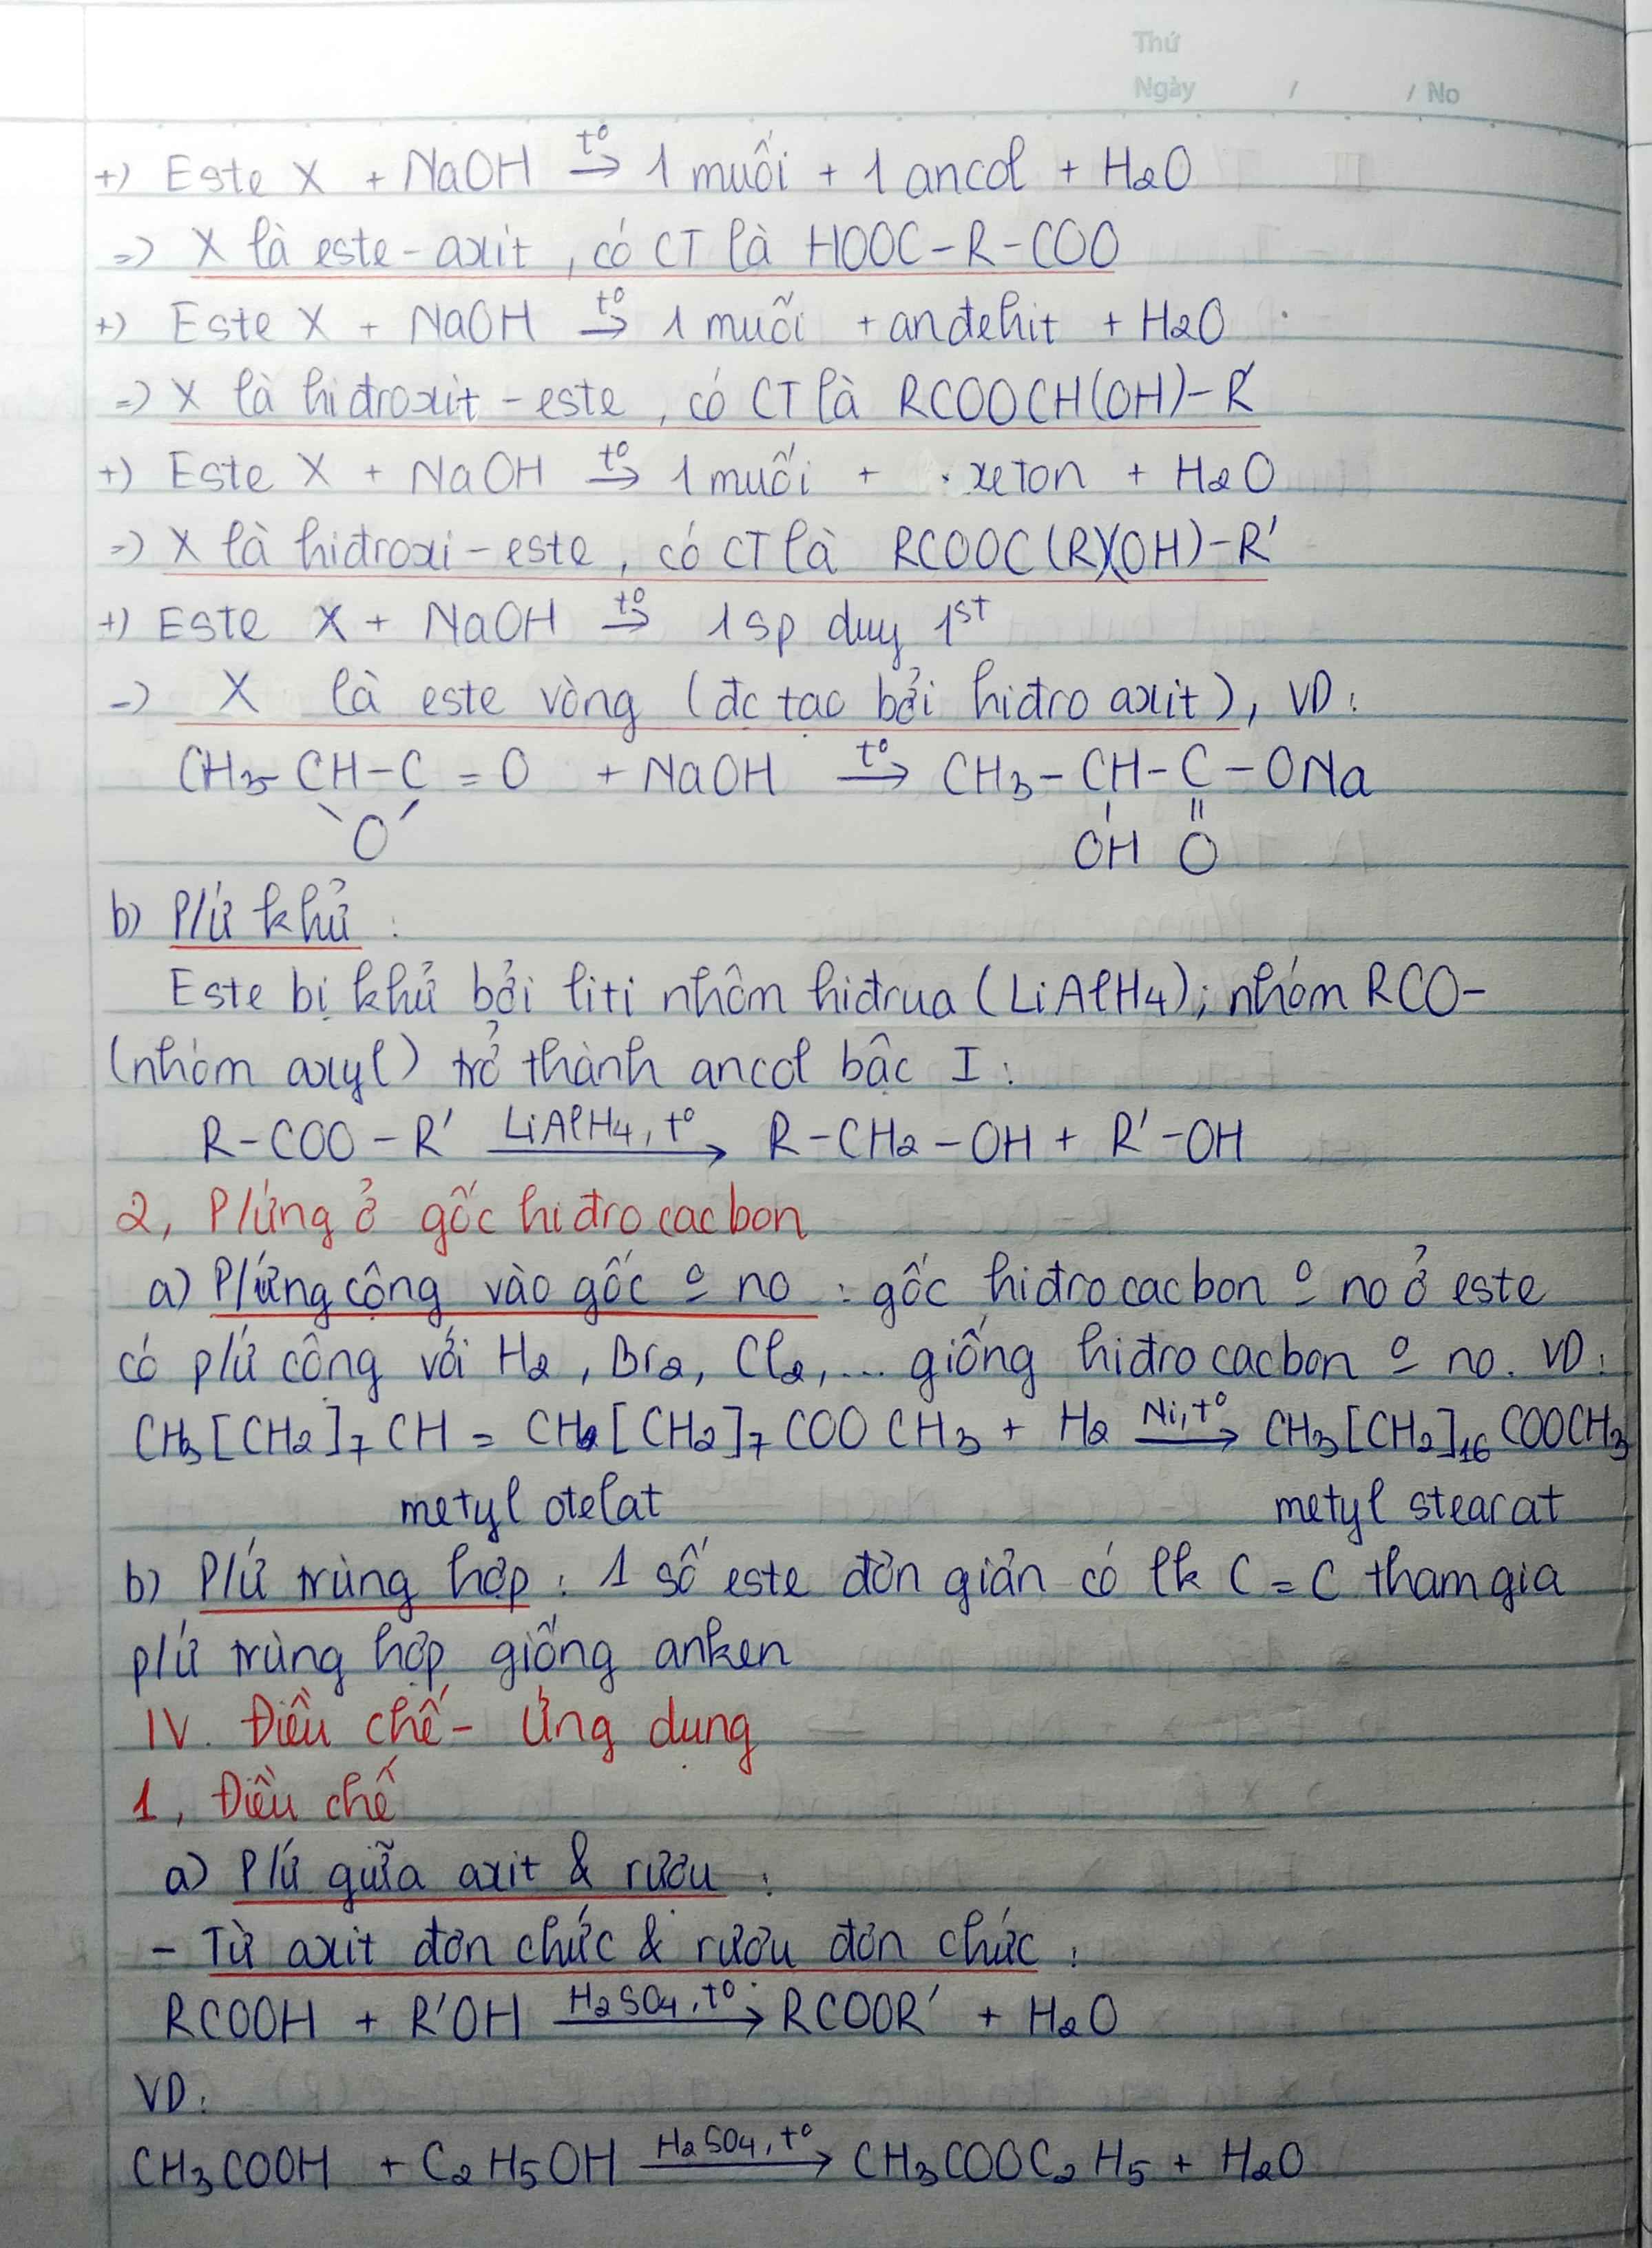 Thứ
Ngày / / No
+) Este X + NaOH t° → 1 muối + 1 ancol + H2O
=> X là este - axit, có CT là HOOC-R-COO
+) Este X + NaOH t° → 1 muối + anđehit + H2O
=> X là hiđroxit - este, có CT là RCOOCH(OH)-R'
+) Este X + NaOH t° → 1 muối + xeton + H2O
=> X là hiđroxi - este, có CT là RCOOC(R)(OH)-R'
+) Este X + NaOH t° → 1 sp duy 1st
-> X là este vòng (đc tạo bởi hiđro axit), VD:
CH3-CH-C=O + NaOH t° → CH3-CH-C-ONa
O OH O
b) P/ứ khử:
Este bị khử bởi liti nhôm hiđrua (LiAlH4); nhóm RCO-
(nhóm axyl) trở thành ancol bậc I:
R-COO-R' LiAlH4, t° → R-CH2-OH + R'-OH
2, P/ứng ở gốc hiđrocacbon
a) P/ứng cộng vào gốc º no: gốc hiđrocacbon º no ở este
có p/ứ cộng với H2, Br2, Cl2,... giống hiđrocacbon º no. VD:
CH3[CH2]7CH=CH[CH2]7COOCH3 + H2 Ni, t° → CH3[CH2]16COOCH3
metyl otelat metyl stearat
b) P/ứ trùng hợp: 1 số este đơn giản có lk C=C tham gia
p/ứ trùng hợp giống anken
IV. Điều chế - Ứng dụng
1, Điều chế
a) P/ứ giữa axit & rượu:
- Từ axit đơn chức & rượu đơn chức:
RCOOH + R'OH H2SO4, t° → RCOOR' + H2O
VD:
CH3COOH + C2H5OH H2SO4, t° → CH3COOC2H5 + H2O